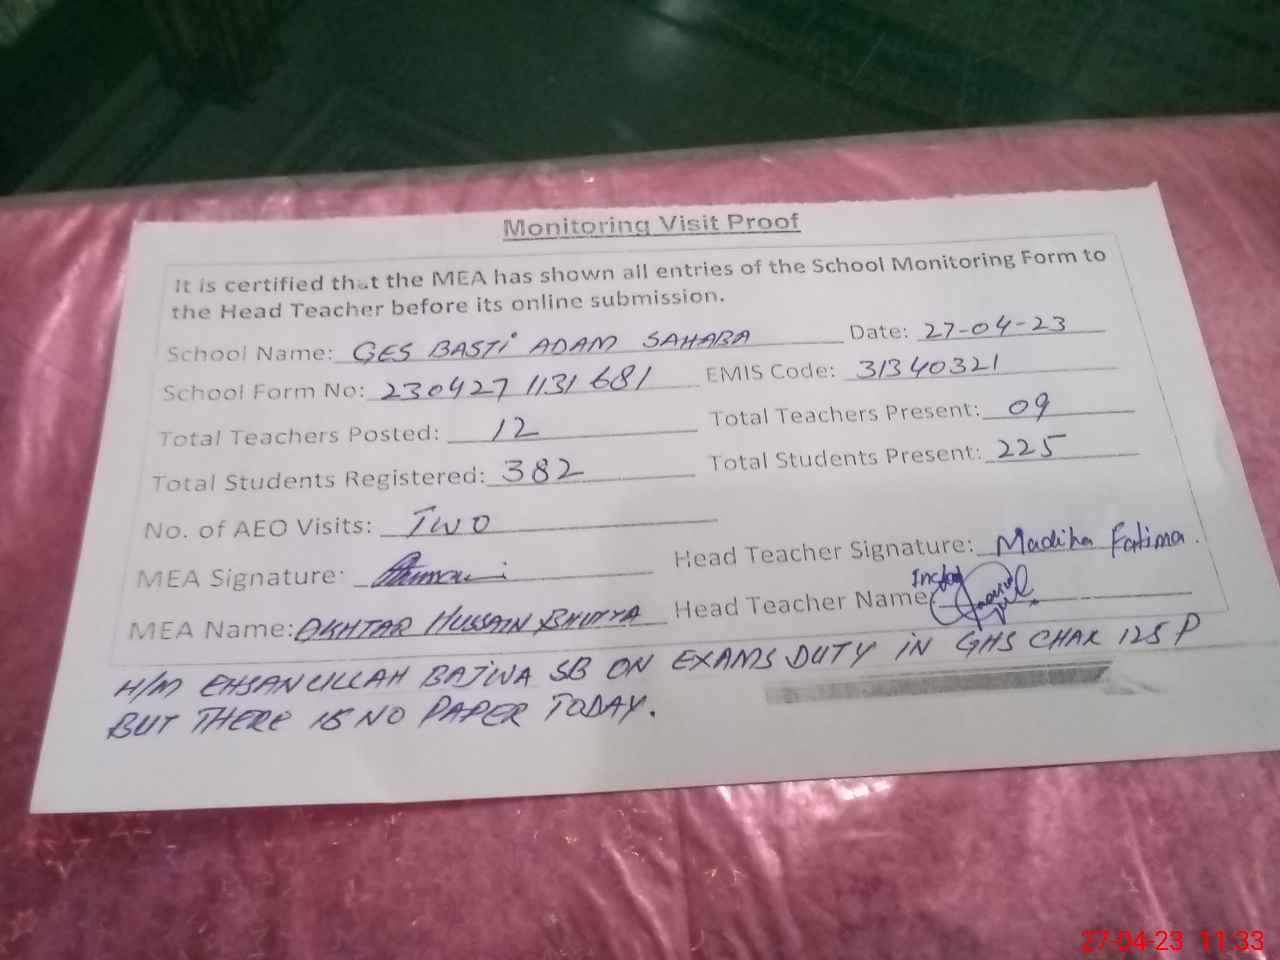 Monitoring Visit Proof
It is certified that the MEA has shown all entries of the School Monitoring Form to
the Head Teacher before its online submission.
School Name: GES BASTI ADAM SAHABA Date: 27-04-23
School Form No: 230427 1131 681 EMIS Code: 31340321
Total Teachers Posted: 12 Total Teachers Present: 09
Total Students Registered: 382 Total Students Present: 225
No. of AEO Visits: TWO
MEA Signature: Head Teacher Signature: Madiha Fatima.
MEA Name: AKHTAR HUSSAIN BHUTTA Head Teacher Name:
H/M EHSANULLAH BAJWA SB ON EXAMS DUTY IN GHS CHAK 125 P
BUT THERE IS NO PAPER TODAY.
27-04-23 11:33